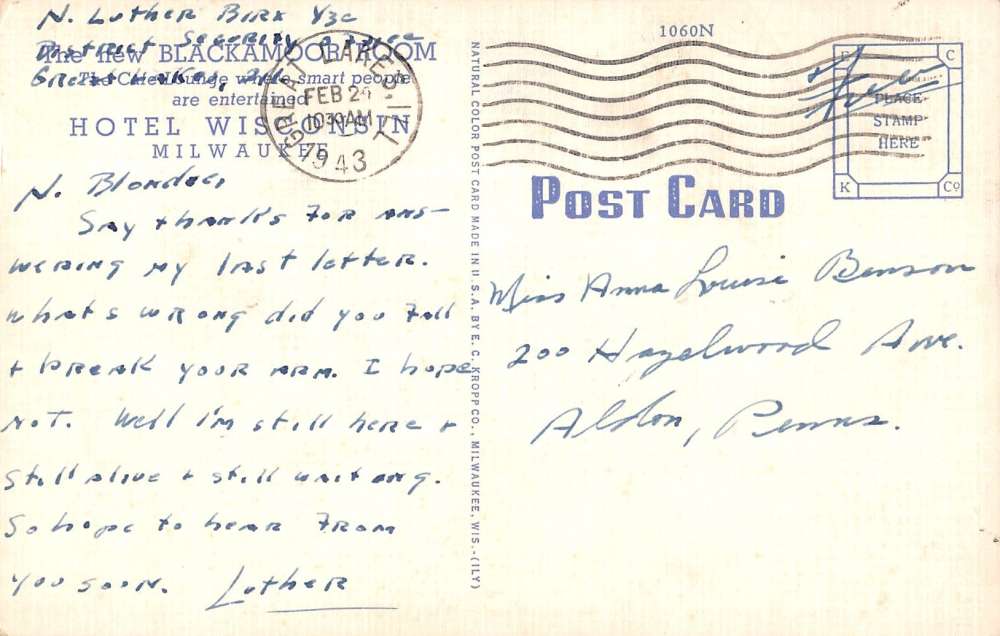 N. Luther Birx Y3c
District Security Office
Great Lakes, Ill.
The new BLACKAMOOR ROOM
The Cafe-Lounge where smart people
are entertained
HOTEL WISCONSIN
MILWAUKEE
GREAT LAKES
FEB 24
1030 AM
1943
ILL
1060N
Free
E C
PLACE
STAMP
HERE
K Co
POST CARD
NATURAL COLOR POST CARD MADE IN U.S.A. BY E. C. KROPP CO., MILWAUKEE, WIS.-(ILY)
Say thanks for ans-
wering my last letter.
Whats wrong did you fall
+ break your arm. I hope
not. Well I'm still here +
still alive + still writing.
So hope to hear from
you soon. Luther
Miss Anna Louise Benson
200 Hazelwood Ave.
Aldon, Penna.